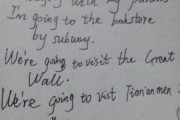 with my parents
I'm going to the bookstore
by subway.
We're going to visit the Great
Wall.
We're going to vist Tian'anmen